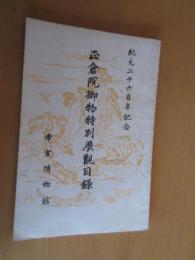 紀元二千六百年記念
正倉院御物特別展觀目録
帝室博物館